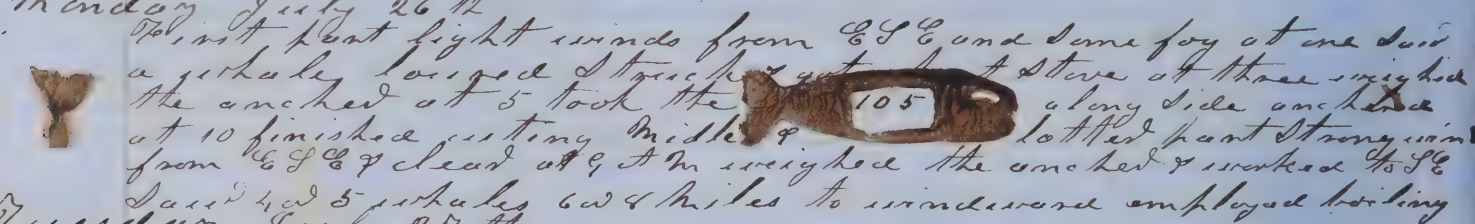 Monday July 26th
First part light winds from ESE and some fog at one saw
a whale lowered struck & got boat stove at three weighed
the ancher at 5 took the 105 along side anchered
at 10 finished cutting Midle & latter part strong win
from ESE & clear at 9 AM weighed the ancher & worked to SE
Saw 4 or 5 whales 6 or 8 miles to windward employed boiling
27th